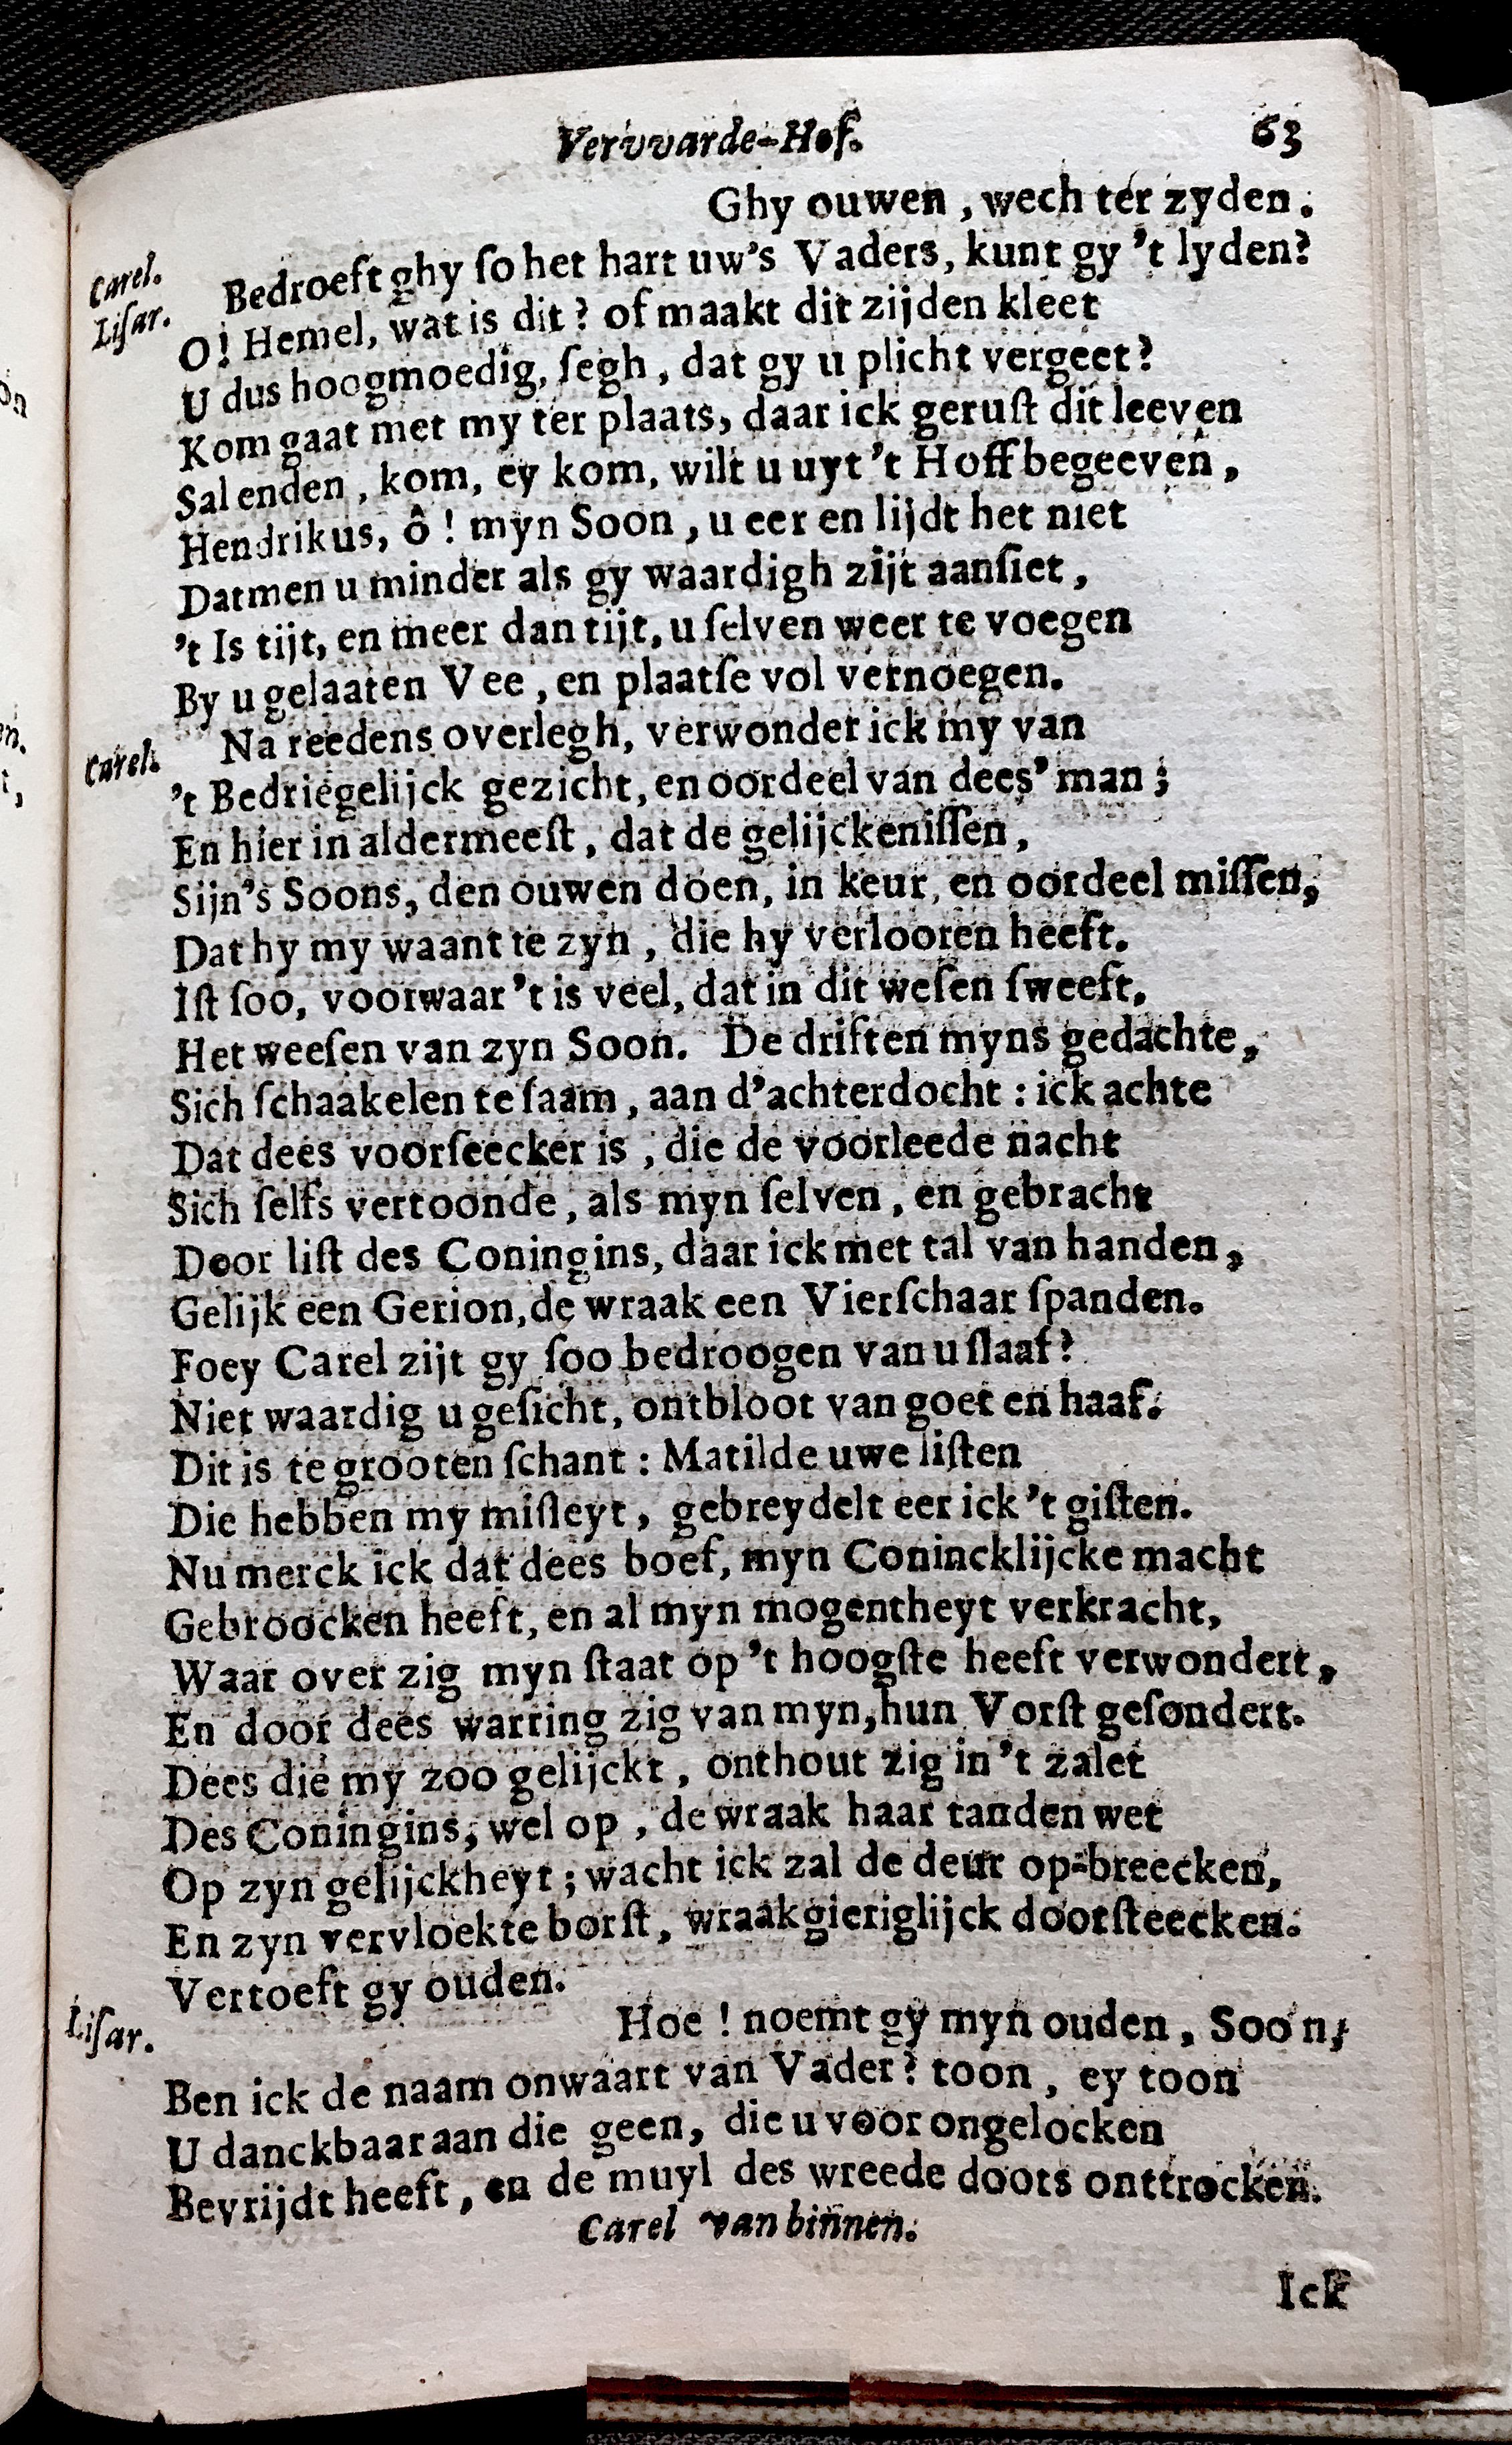 Vervvarde-Hof. 63
Ghy ouwen, wech ter zyden.
Carel. Bedroeft ghy ſo het hart uw's Vaders, kunt gy 't lyden?
Liſar. O! Hemel, wat is dit? of maakt dit zijden kleet
U dus hoogmoedig, ſegh, dat gy u plicht vergeet?
Kom gaat met my ter plaats, daar ick geruſt dit leeven
Sal enden, kom, ey kom, wilt u uyt 't Hoff begeeven,
Hendrikus, ô! myn Soon, u eer en lijdt het niet
Datmen u minder als gy waardigh zijt aanſiet,
't Is tijt, en meer dan tijt, u ſelven weer te voegen
By u gelaaten Vee, en plaatſe vol vernoegen.
Carel. Na reedens overlegh, verwonder ick my van
't Bedriegelijck gezicht, en oordeel van dees' man;
En hier in aldermeeſt, dat de gelijckeniſſen,
Sijn's Soons, den ouwen doen, in keur, en oordeel miſſen,
Dat hy my waant te zyn, die hy verlooren heeft.
Iſt ſoo, voorwaar 't is veel, dat in dit weſen ſweeft,
Het weeſen van zyn Soon. De driften myns gedachte,
Sich ſchaakelen te ſaam, aan d'achterdocht: ick achte
Dat dees voorſeecker is, die de voorleede nacht
Sich ſelfs vertoonde, als myn ſelven, en gebracht
Door liſt des Coningins, daar ick met tal van handen,
Gelijk een Gerion, de wraak een Vierſchaar ſpanden.
Foey Carel zijt gy ſoo bedroogen van u ſlaaf?
Niet waardig u geſicht, ontbloot van goet en haaf.
Dit is te grooten ſchant: Matilde uwe liſten
Die hebben my miſleyt, gebreydelt eer ick 't giſten.
Nu merck ick dat dees boef, myn Conincklijcke macht
Gebroocken heeft, en al myn mogentheyt verkracht,
Waar over zig myn ſtaat op 't hoogſte heeft verwondert,
En door dees warring zig van myn, hun Vorſt geſondert.
Dees die my zoo gelijckt, onthout zig in 't zalet
Des Coningins, wel op, de wraak haar tanden wet
Op zyn gelijckheyt; wacht ick zal de deur op-breecken,
En zyn vervloekte borſt, wraakgieriglijck doorſteecken.
Vertoeft gy ouden.
Liſar. Hoe! noemt gy myn ouden, Soon,
Ben ick de naam onwaart van Vader? toon, ey toon
U danckbaar aan die geen, die u voor ongelocken
Bevrijdt heeft, en de muyl des wreede doots onttrocken.
Carel van binnen.
Ick